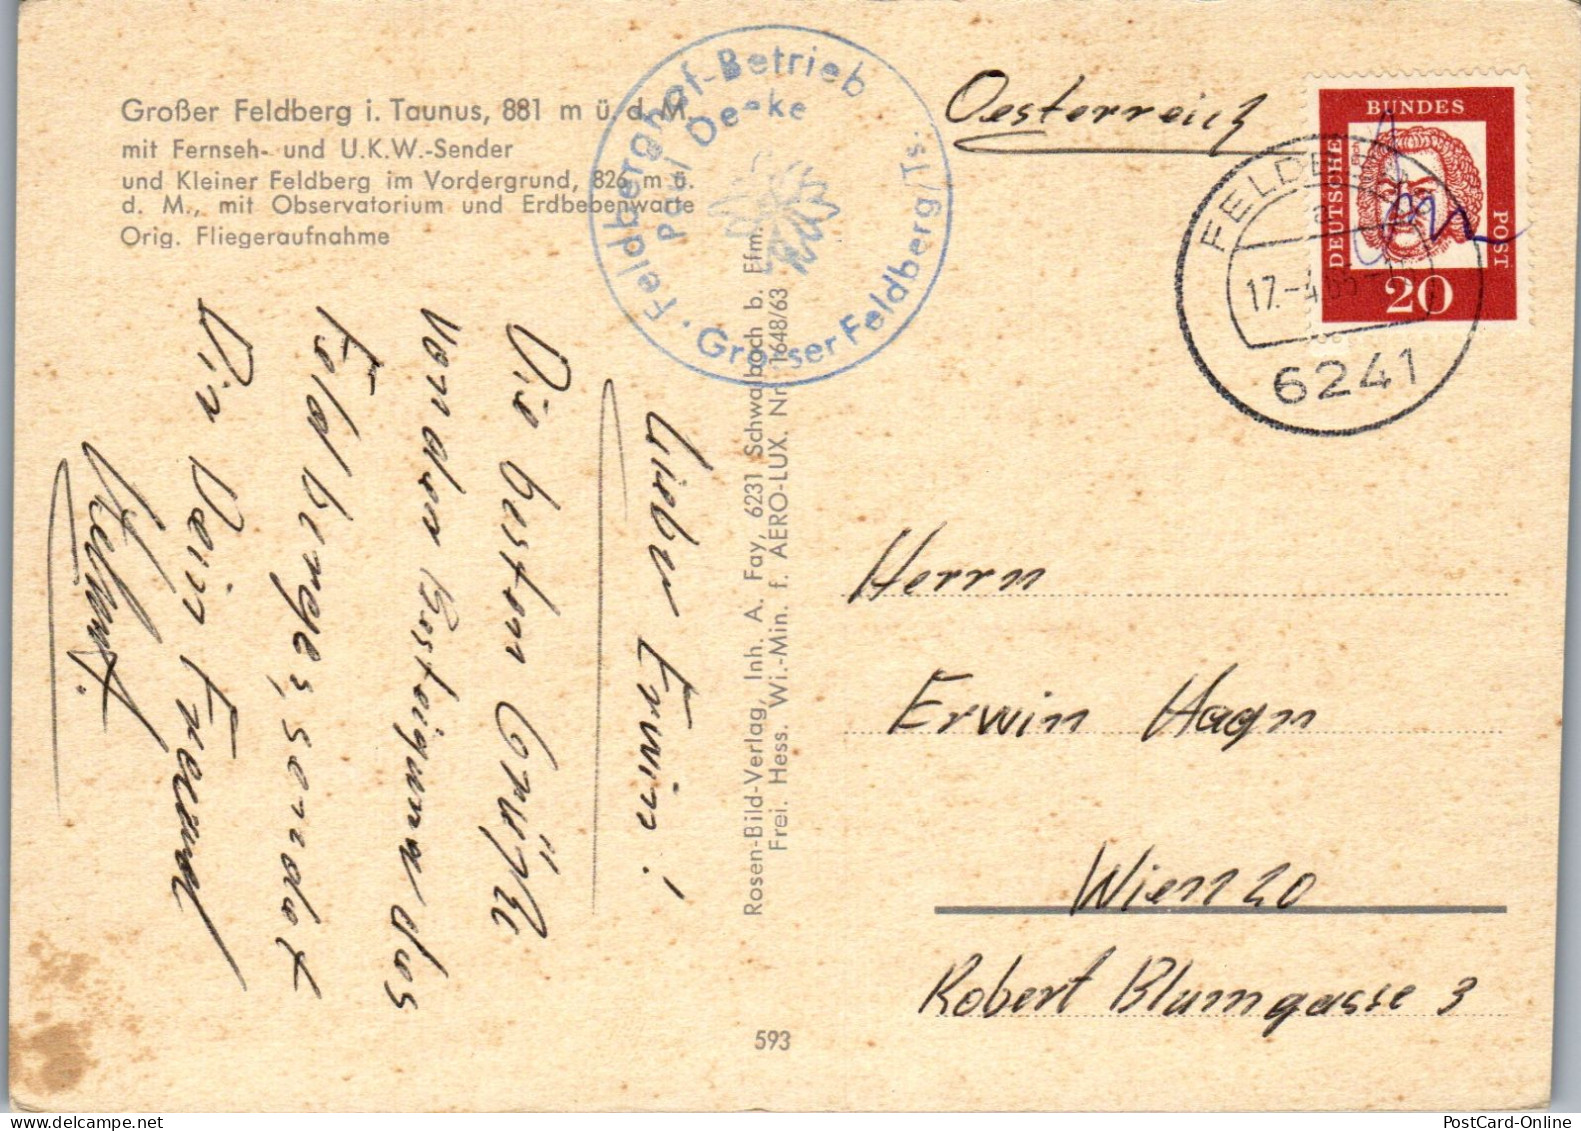 Großer Feldberg i. Taunus, 881 m ü. d. M.
mit Fernseh- und U.K.W.-Sender
und Kleiner Feldberg im Vordergrund, 826 m ü.
d. M., mit Observatorium und Erdbebenwarte
Orig. Fliegeraufnahme
Feldberghof-Betrieb
Paul
Grosser Feldberg/Ts.
Oesterreich
DEUTSCHE
BUNDES
POST
20
17.-4.65
6241
Lieber Erwin!
Die besten Grüße
von der Besteigung des
Feldberges, sendet
Dir Dein Freund
Helmut.
Rosen-Bild-Verlag, Inh. A. Fay, 6231 Schwalbach b. Ffm.
Frei. Hess. Wi.-Min. f. AERO-LUX. Nr. 1648/63
593
Herrn
Erwin Hagn
Wien 20
Robert Blumgasse 3
PostCard-Online